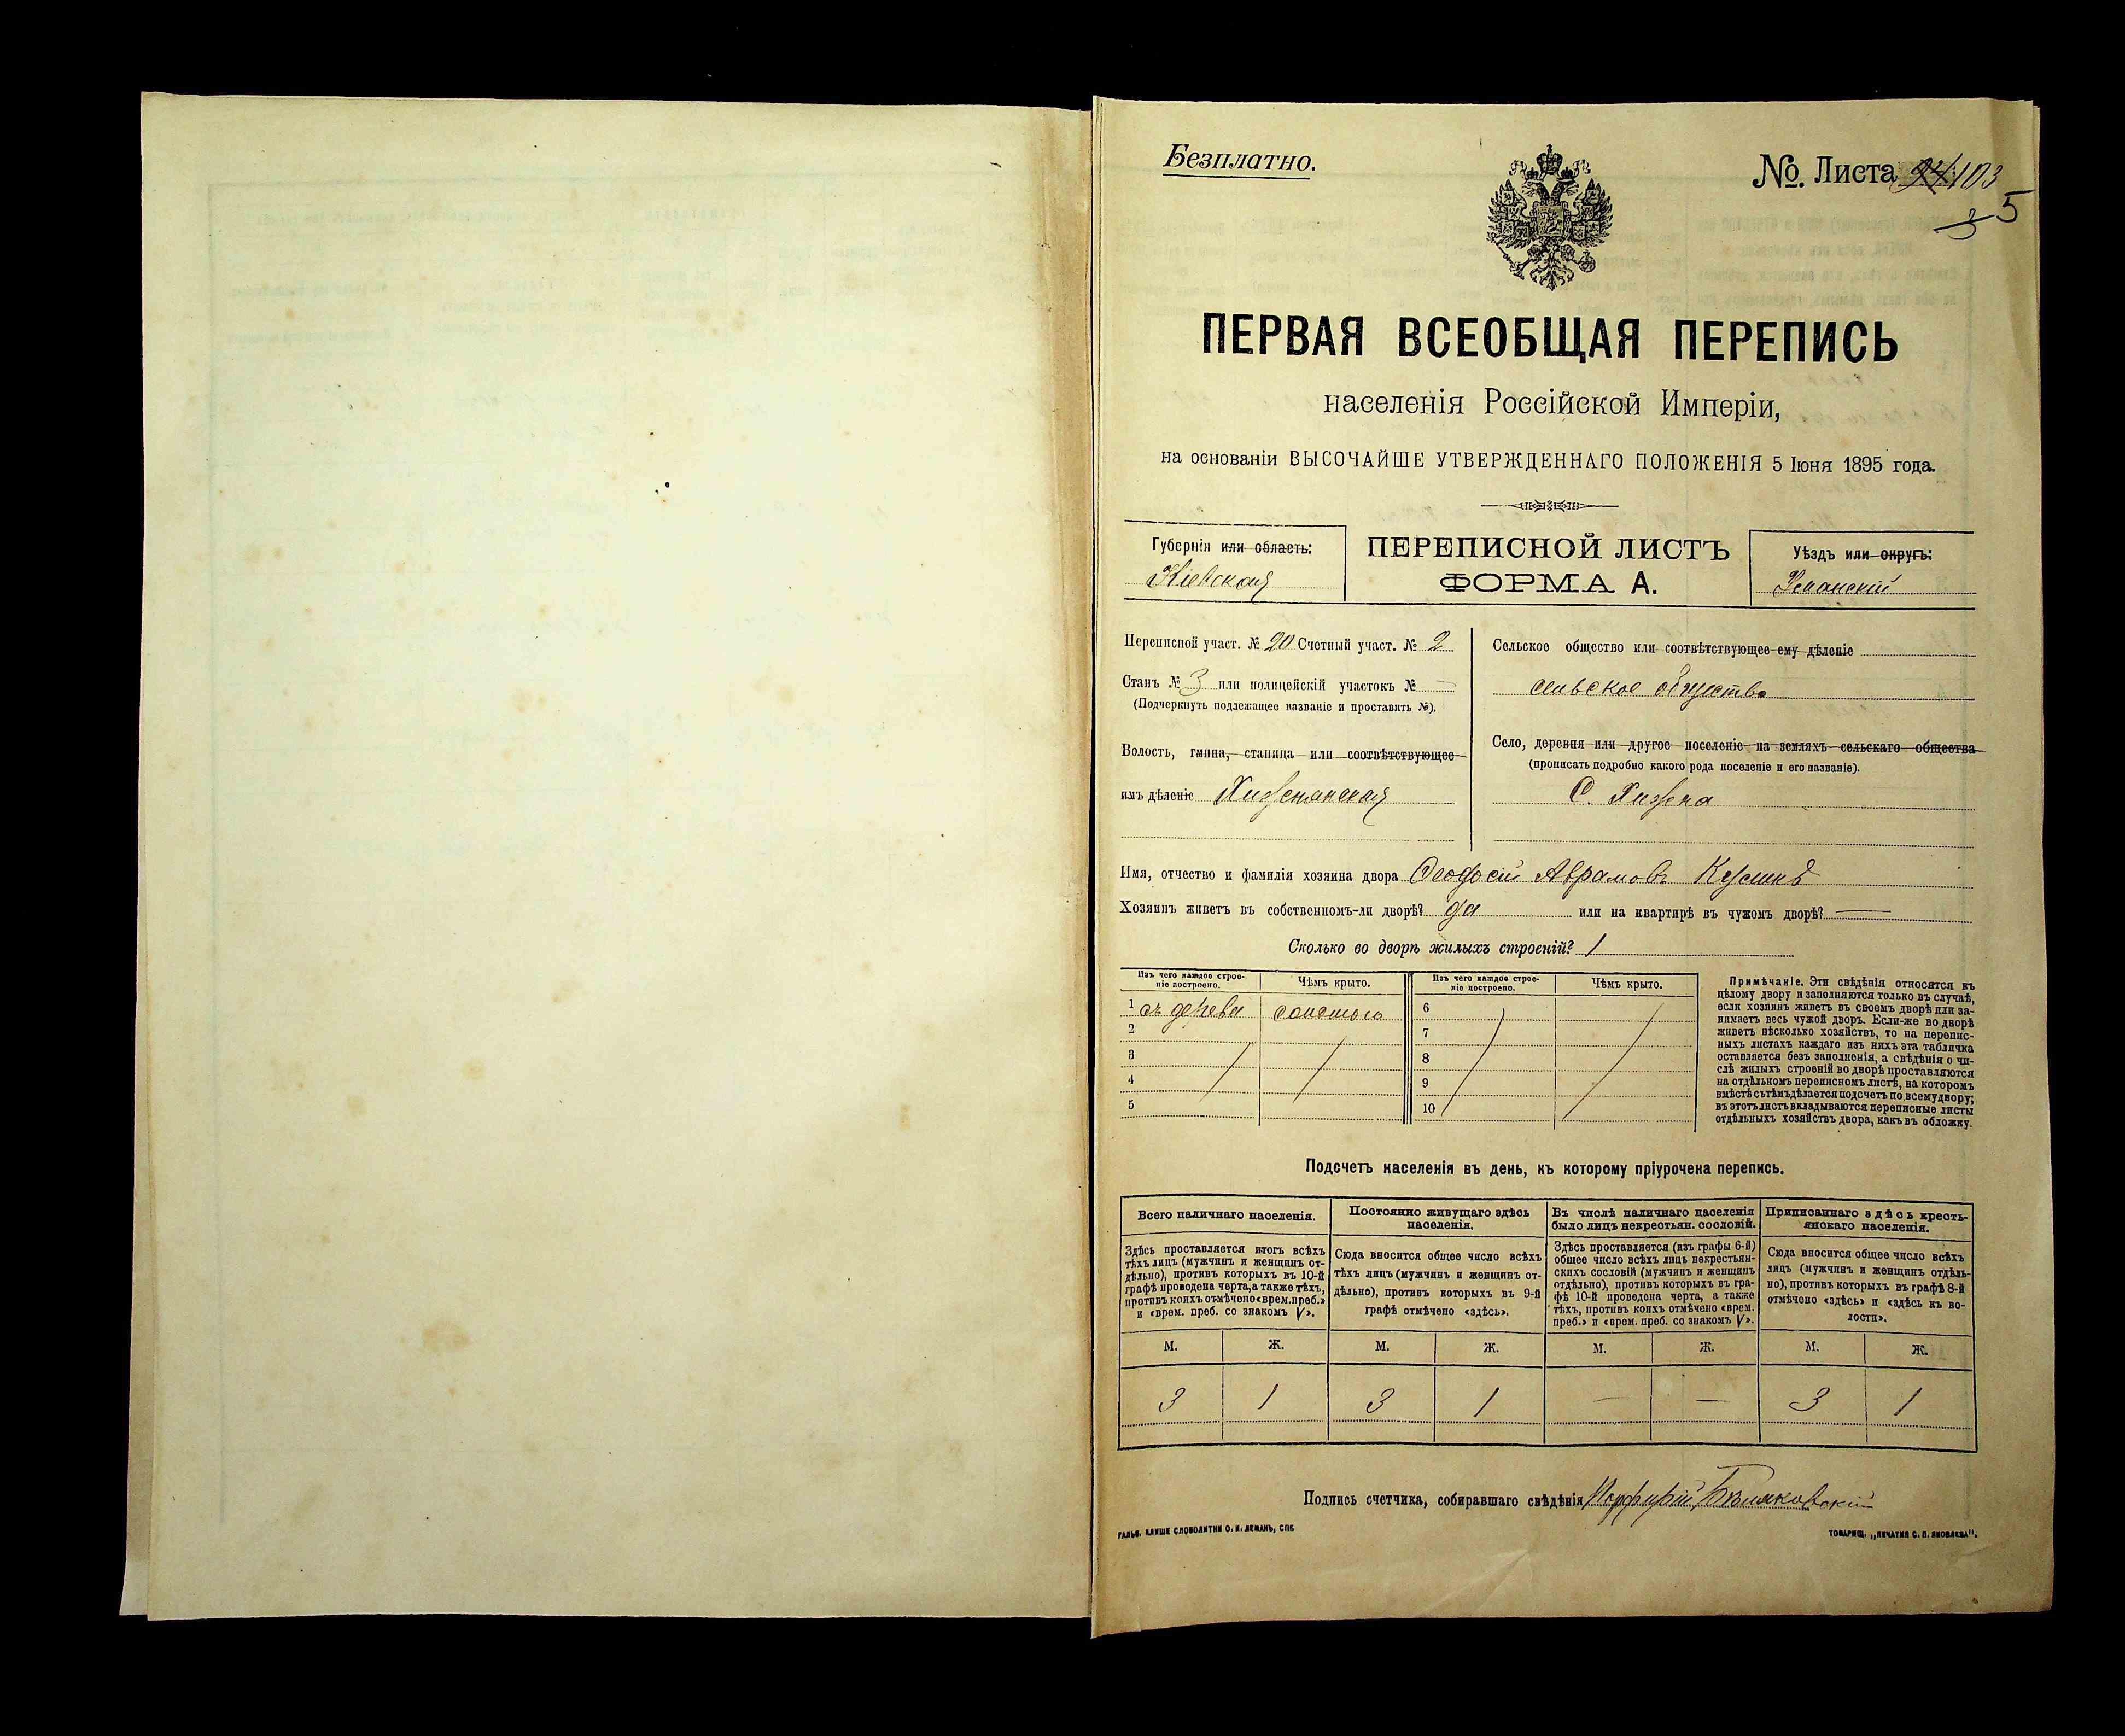 Безплатно.
№. Листа 103
5
ПЕРВАЯ ВСЕОБЩАЯ ПЕРЕПИСЬ
населенія Россійской Имперіи,
на основаніи ВЫСОЧАЙШЕ УТВЕРЖДЕННАГО ПОЛОЖЕНІЯ 5 Іюня 1895 года.
Губернія или область:
Кіевская
ПЕРЕПИСНОЙ ЛИСТЪ
ФОРМА А.
Уѣздъ или округъ:
Уманскій
Переписной участ. № 20 Счетный участ. № 2
Станъ № 3 или полицейскій участокъ № —
(Подчеркнуть подлежащее названіе и проставить №).
Волость, гмина, станица или соотвѣтствующее
имъ дѣленіе Хижнянская
Сельское общество или соотвѣтствующее ему дѣленіе
сельское общество
Село, деревня или другое поселеніе на земляхъ сельскаго общества
(прописать подробно какого рода поселеніе и его названіе).
С. Хижна
Имя, отчество и фамилія хозяина двора Феодосій Аврамовъ
Хозяинъ живетъ въ собственномъ-ли дворѣ? да или на квартирѣ въ чужомъ дворѣ? —
Сколько во дворѣ жилыхъ строеній? 1
Изъ чего каждое строе-
ніе построено.
Чѣмъ крыто.
Изъ чего каждое строе-
ніе построено.
Чѣмъ крыто.
1 съ дерева соломою
2
3
4
5
6
7
8
9
10
Примѣчаніе. Эти свѣдѣнія относятся къ
цѣлому двору и заполняются только въ случаѣ,
если хозяинъ живетъ въ своемъ дворѣ или за-
нимаетъ весь чужой дворъ. Если-же во дворѣ
живетъ нѣсколько хозяйствъ, то на перепис-
ныхъ листахъ каждаго изъ нихъ эта табличка
оставляется безъ заполненія, а свѣдѣнія о чи-
слѣ жилыхъ строеній во дворѣ проставляются
на отдѣльномъ переписномъ листѣ, на которомъ
вмѣстѣ съ тѣмъ дѣлается подсчетъ по всему двору;
въ этотъ листъ вкладываются переписные листы
отдѣльныхъ хозяйствъ двора, какъ въ обложку.
Подсчетъ населенія въ день, къ которому пріурочена перепись.
Всего наличнаго населенія.
Здѣсь проставляется итогъ всѣхъ
тѣхъ лицъ (мужчинъ и женщинъ от-
дѣльно), противъ которыхъ въ 10-й
графѣ проведена черта, а также тѣхъ,
противъ коихъ отмѣчено «врем. преб.»
и «врем. преб. со знакомъ V».
Постоянно живущаго здѣсь
населенія.
Сюда вносится общее число всѣхъ
тѣхъ лицъ (мужчинъ и женщинъ от-
дѣльно), противъ которыхъ въ 9-й
графѣ отмѣчено «здѣсь».
Въ числѣ наличнаго населенія
было лицъ некрестьян. сословій.
Здѣсь проставляется (изъ графы 6-й)
общее число всѣхъ лицъ некрестьян-
скихъ сословій (мужчинъ и женщинъ
отдѣльно), противъ которыхъ въ гра-
фѣ 10-й проведена черта, а также
тѣхъ, противъ коихъ отмѣчено «врем.
преб.» и «врем. преб. со знакомъ V».
Приписаннаго здѣсь кресть-
янскаго населенія.
Сюда вносится общее число всѣхъ
лицъ (мужчинъ и женщинъ отдѣль-
но), противъ которыхъ въ графѣ 8-й
отмѣчено «здѣсь» и «здѣсь къ во-
лости».
М. Ж. М. Ж. М. Ж. М. Ж.
3 1 3 1 — — 3 1
Подпись счетчика, собиравшаго свѣдѣнія Порфирій
ГАЛЬВ. КЛИШЕ СЛОВОЛИТНИ О. И. ЛЕМАНЪ, СПБ.
ТОВАРИЩ. „ПЕЧАТНЯ С. П. ЯКОВЛЕВА".